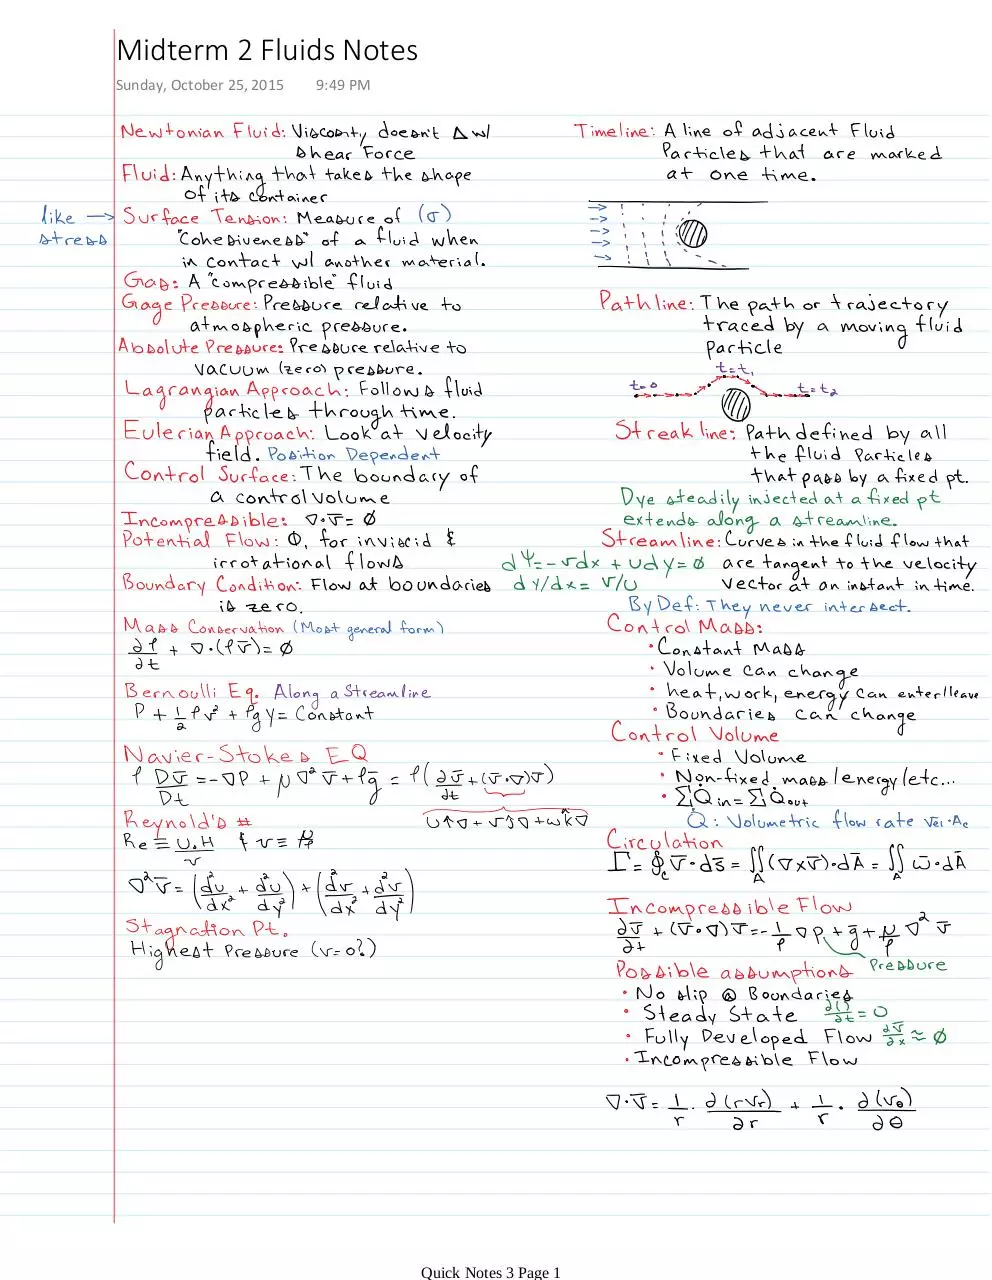 Midterm 2 Fluids Notes
Sunday, October 25, 2015 9:49 PM
Newtonian Fluid: Viscosity doesn't Δ w/
shear Force
Fluid: Anything that takes the shape
of its container
like → Surface Tension: Measure of (σ)
stress "Cohesiveness" of a fluid when
in contact w/ another material.
Gas: A "compressible" fluid
Gage Pressure: Pressure relative to
atmospheric pressure.
Absolute Pressure: Pressure relative to
vacuum (zero) pressure.
Lagrangian Approach: Follows fluid
particles through time.
Eulerian Approach: Look at velocity
field. Position Dependent
Control Surface: The boundary of
a control volume
Incompressible: ∇·v̄ = ø
Potential Flow: Φ, for inviscid &
irrotational flows
Boundary Condition: Flow at boundaries
is zero.
Mass Conservation (Most general form)
∂ρ/∂t + ∇·(ρv̄) = ø
Bernoulli Eq. Along a Streamline
P + 1/2 ρv² + ρgy = Constant
Navier-Stokes EQ
ρ Dv̄/Dt = -∇P + μ∇²v̄ + ρḡ = ρ(∂v̄/∂t + (v̄·∇)v̄)
u↑∇ + vĵ∇ + wk̂∇
Reynold's #
Re ≡ U.H/ν & ν ≡ μ/ρ
∇²v̄ = (d²u/dx² + d²u/dy²) + (d²v/dx² + d²v/dy²)
Stagnation Pt.
Highest Pressure (v=0?)
Timeline: A line of adjacent Fluid
Particles that are marked
at one time.
Pathline: The path or trajectory
traced by a moving fluid
particle
t=0 t=t₁ t=t₂
Streakline: Path defined by all
the fluid Particles
that pass by a fixed pt.
Dye steadily injected at a fixed pt
extends along a streamline.
Streamline: Curves in the fluid flow that
dΨ = -vdx + udy = ø are tangent to the velocity
dy/dx = v/u vector at an instant in time.
By Def: They never intersect.
Control Mass:
• Constant Mass
• Volume can change
• heat, work, energy can enter/leave
• Boundaries can change
Control Volume
• Fixed Volume
• Non-fixed mass/energy/etc...
• ΣQ̇in = ΣQ̇out
Q̇: Volumetric flow rate Vel·Ac
Circulation
Γ = ∮c v̄·ds̄ = ∬A (∇×v̄)·dĀ = ∬A ω̄·dĀ
Incompressible Flow
∂v̄/∂t + (v̄·∇)v̄ = -1/ρ ∇p + ḡ + μ/ρ ∇² v̄
Pressure
Possible assumptions
• No slip @ Boundaries
• Steady State ∂()/∂t = 0
• Fully Developed Flow ∂v̄/∂x ≈ ø
• Incompressible Flow
∇·v̄ = 1/r · ∂(rvr)/∂r + 1/r · ∂(vθ)/∂θ
Quick Notes 3 Page 1